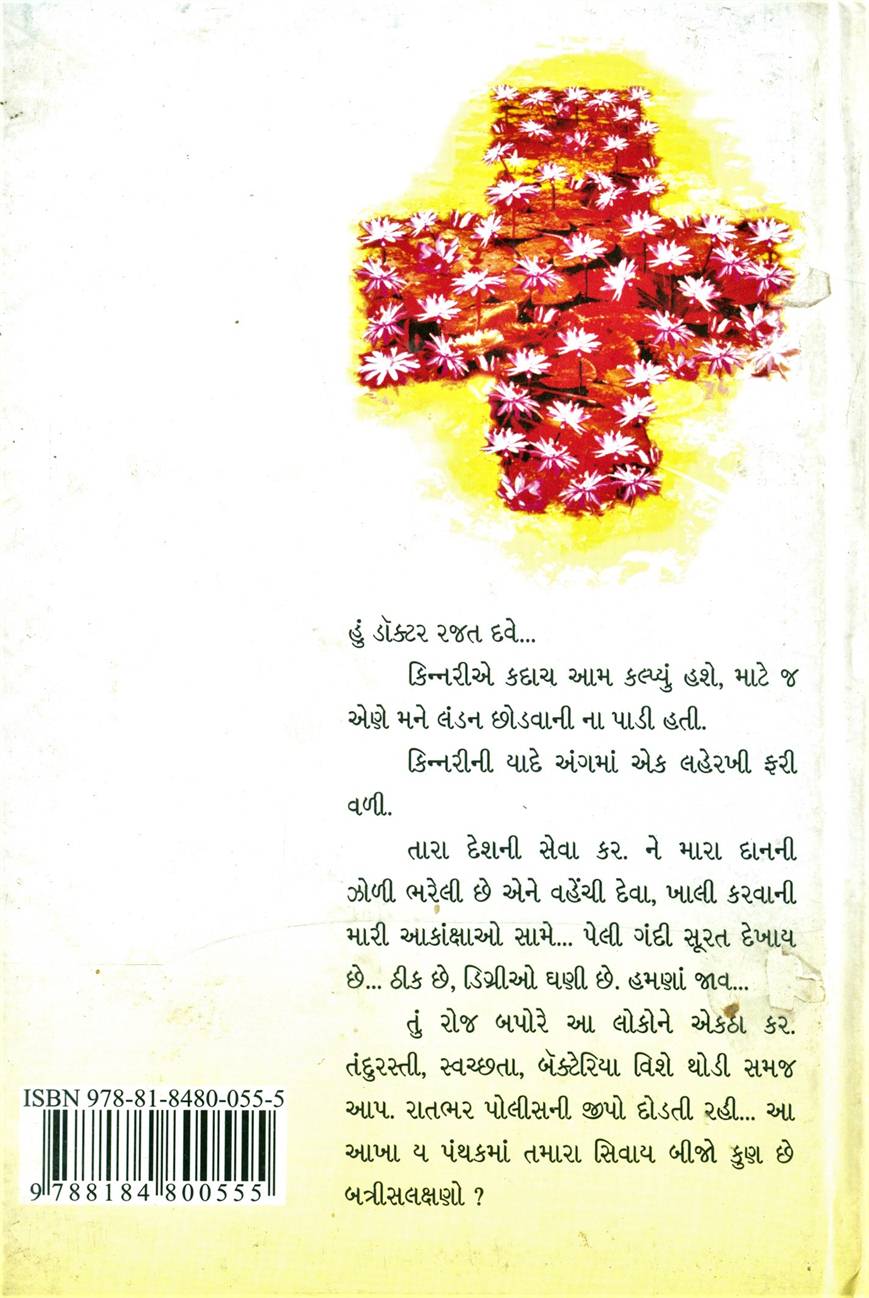 હું ડૉક્ટર રજત દવે...
કિન્નરીએ કદાચ આમ કલ્પ્યું હશે, માટે જ
એણે મને લંડન છોડવાની ના પાડી હતી.
કિન્નરીની યાદે અંગમાં એક લહેરખી ફરી
વળી.
તારા દેશની સેવા કર. ને મારા દાનની
ઝોળી ભરેલી છે એને વહેંચી દેવા, ખાલી કરવાની
મારી આકાંક્ષાઓ સામે... પેલી ગંદી સૂરત દેખાય
છે... ઠીક છે, ડિગ્રીઓ ઘણી છે. હમણાં જાવ...
તું રોજ બપોરે આ લોકોને એકઠા કર.
તંદુરસ્તી, સ્વચ્છતા, બૅક્ટેરિયા વિશે થોડી સમજ
આપ. રાતભર પોલીસની જીપો દોડતી રહી... આ
આખા ય પંથકમાં તમારા સિવાય બીજો કુણ છે
બત્રીસલક્ષણો ?
ISBN 978-81-8480-055-5
9 788184 800555